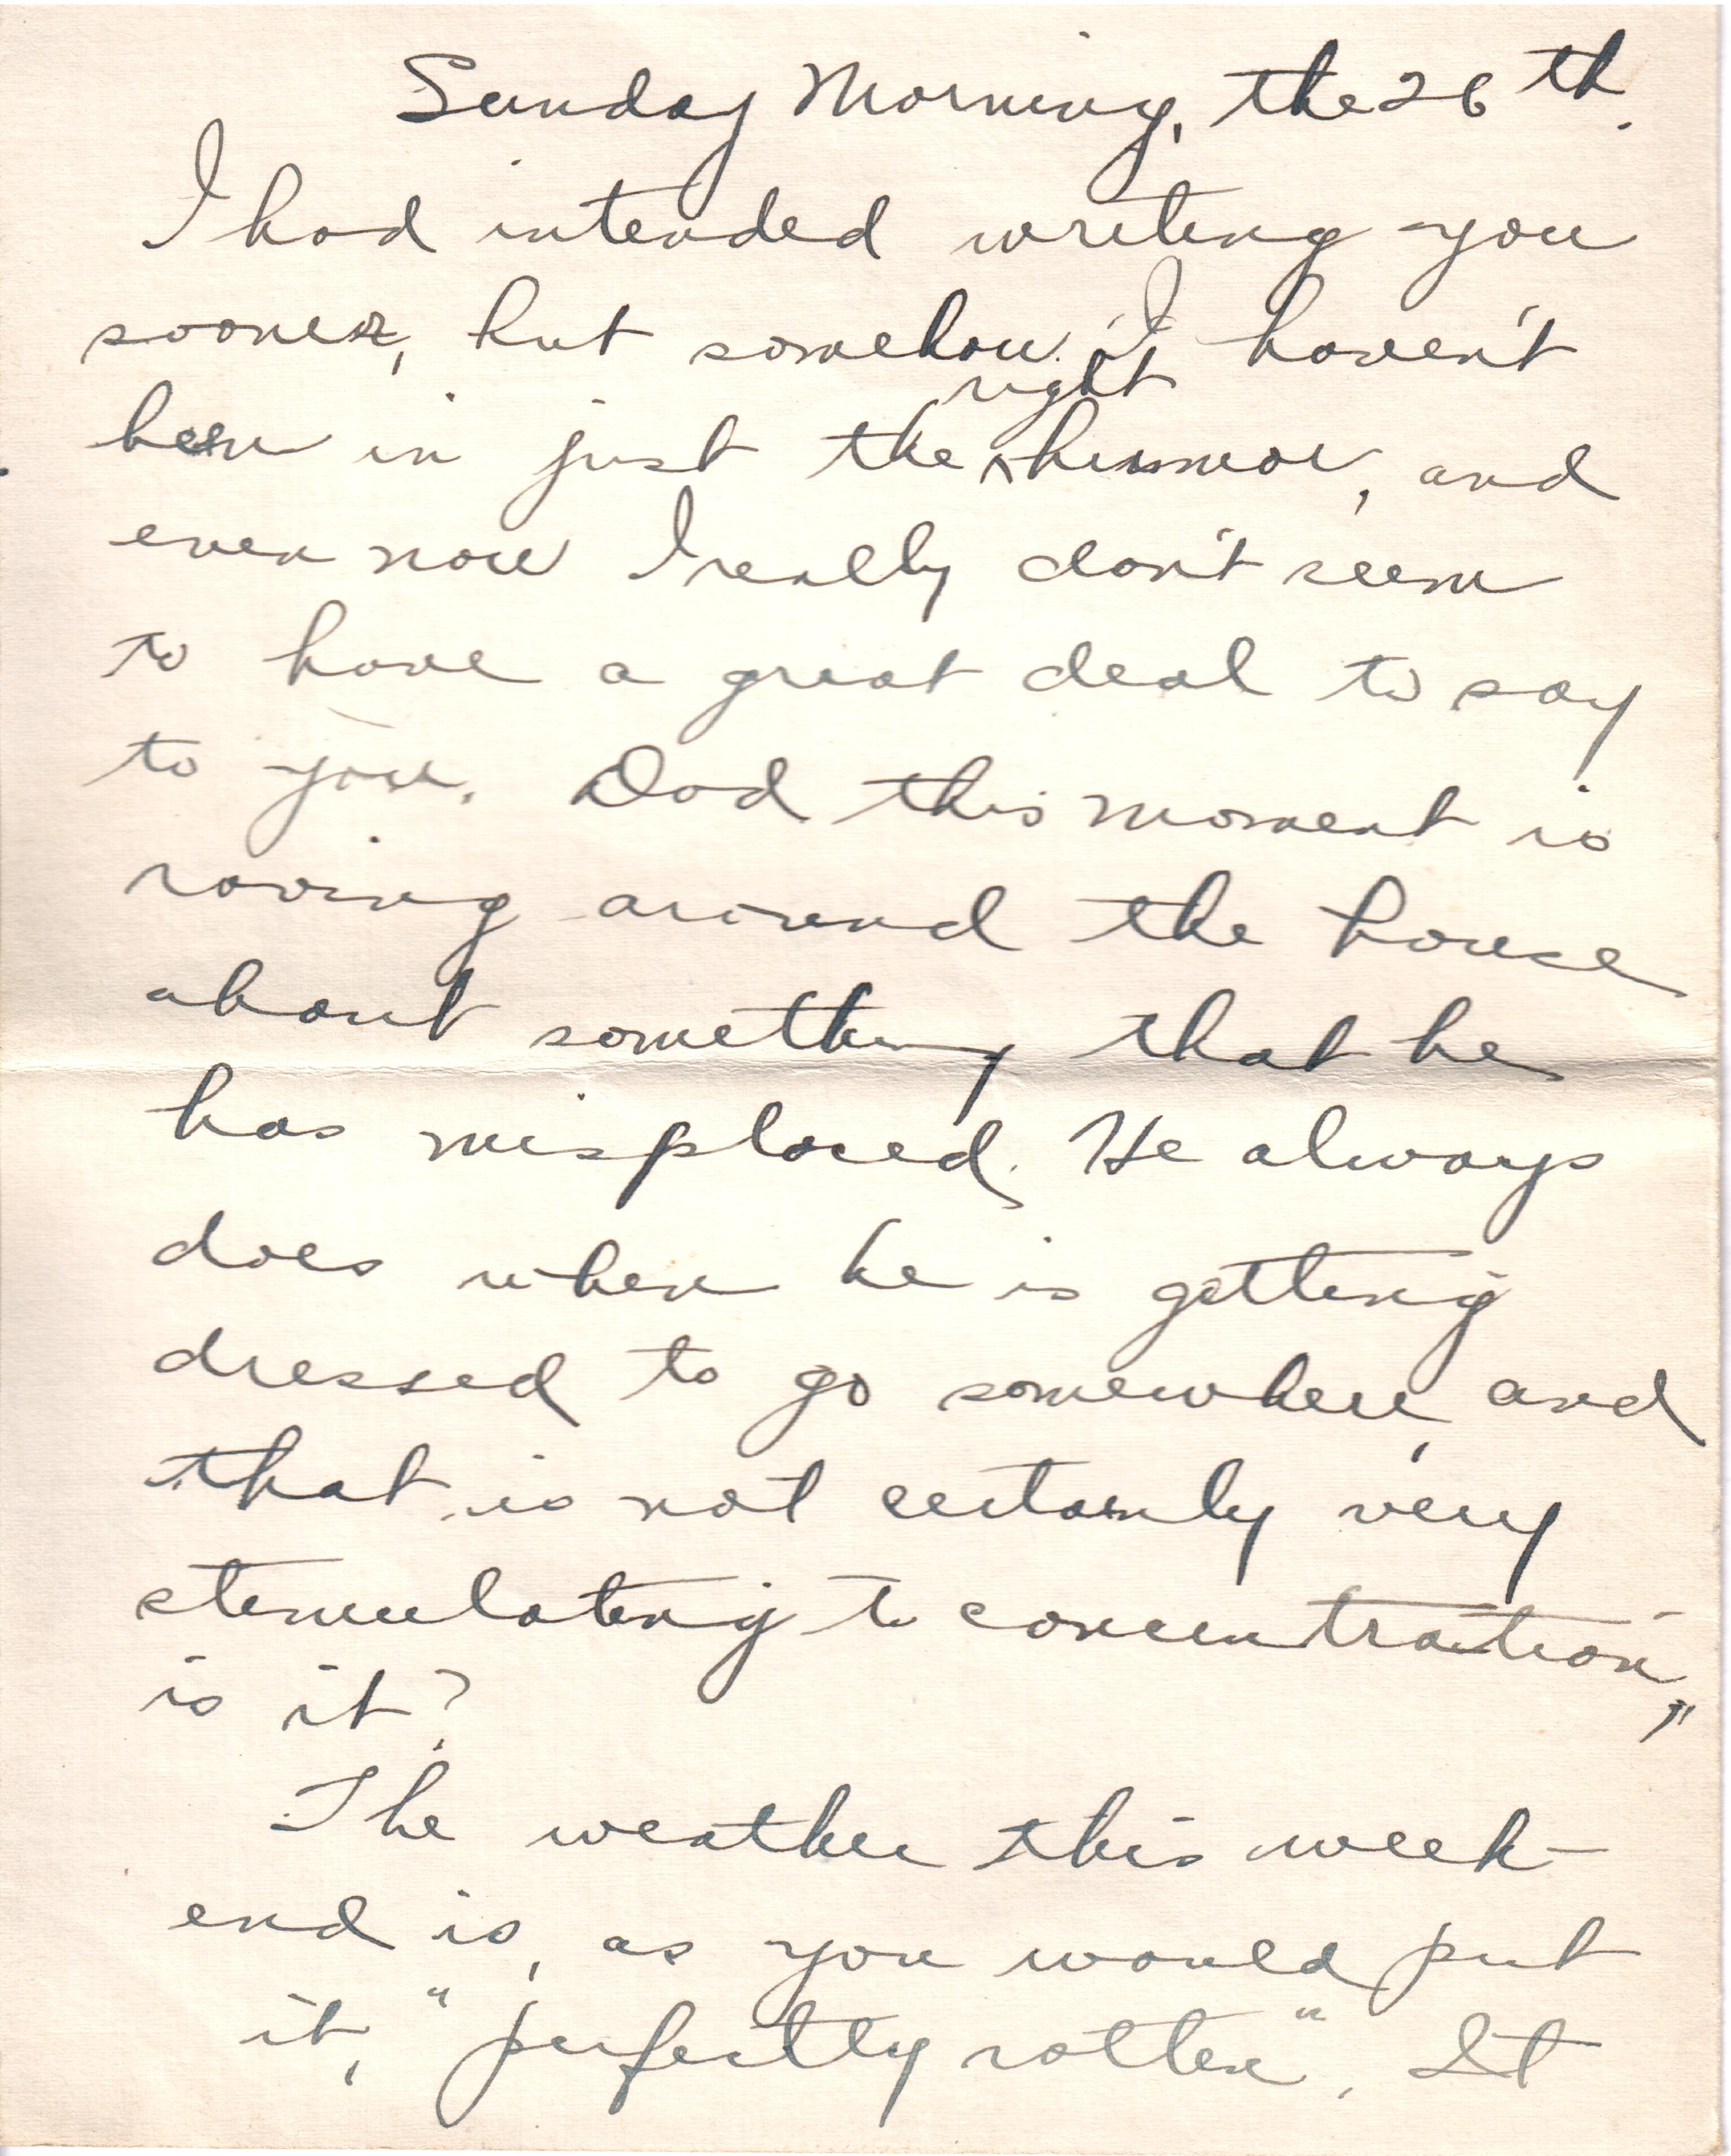 Sunday Morning, the 26th.
I had intended writing you
sooner, but somehow I haven't
right
been in just the ^ humor, and
even now I really don't seem
to have a great deal to say
to you. Dad this moment is
roving around the house
about something that he
has misplaced. He always
does when he is getting
dressed to go somewhere, and
that is not certainly very
stimulating to concentration,
is it?
The weather this week-
end is, as you would put
it, "perfectly rotten". It